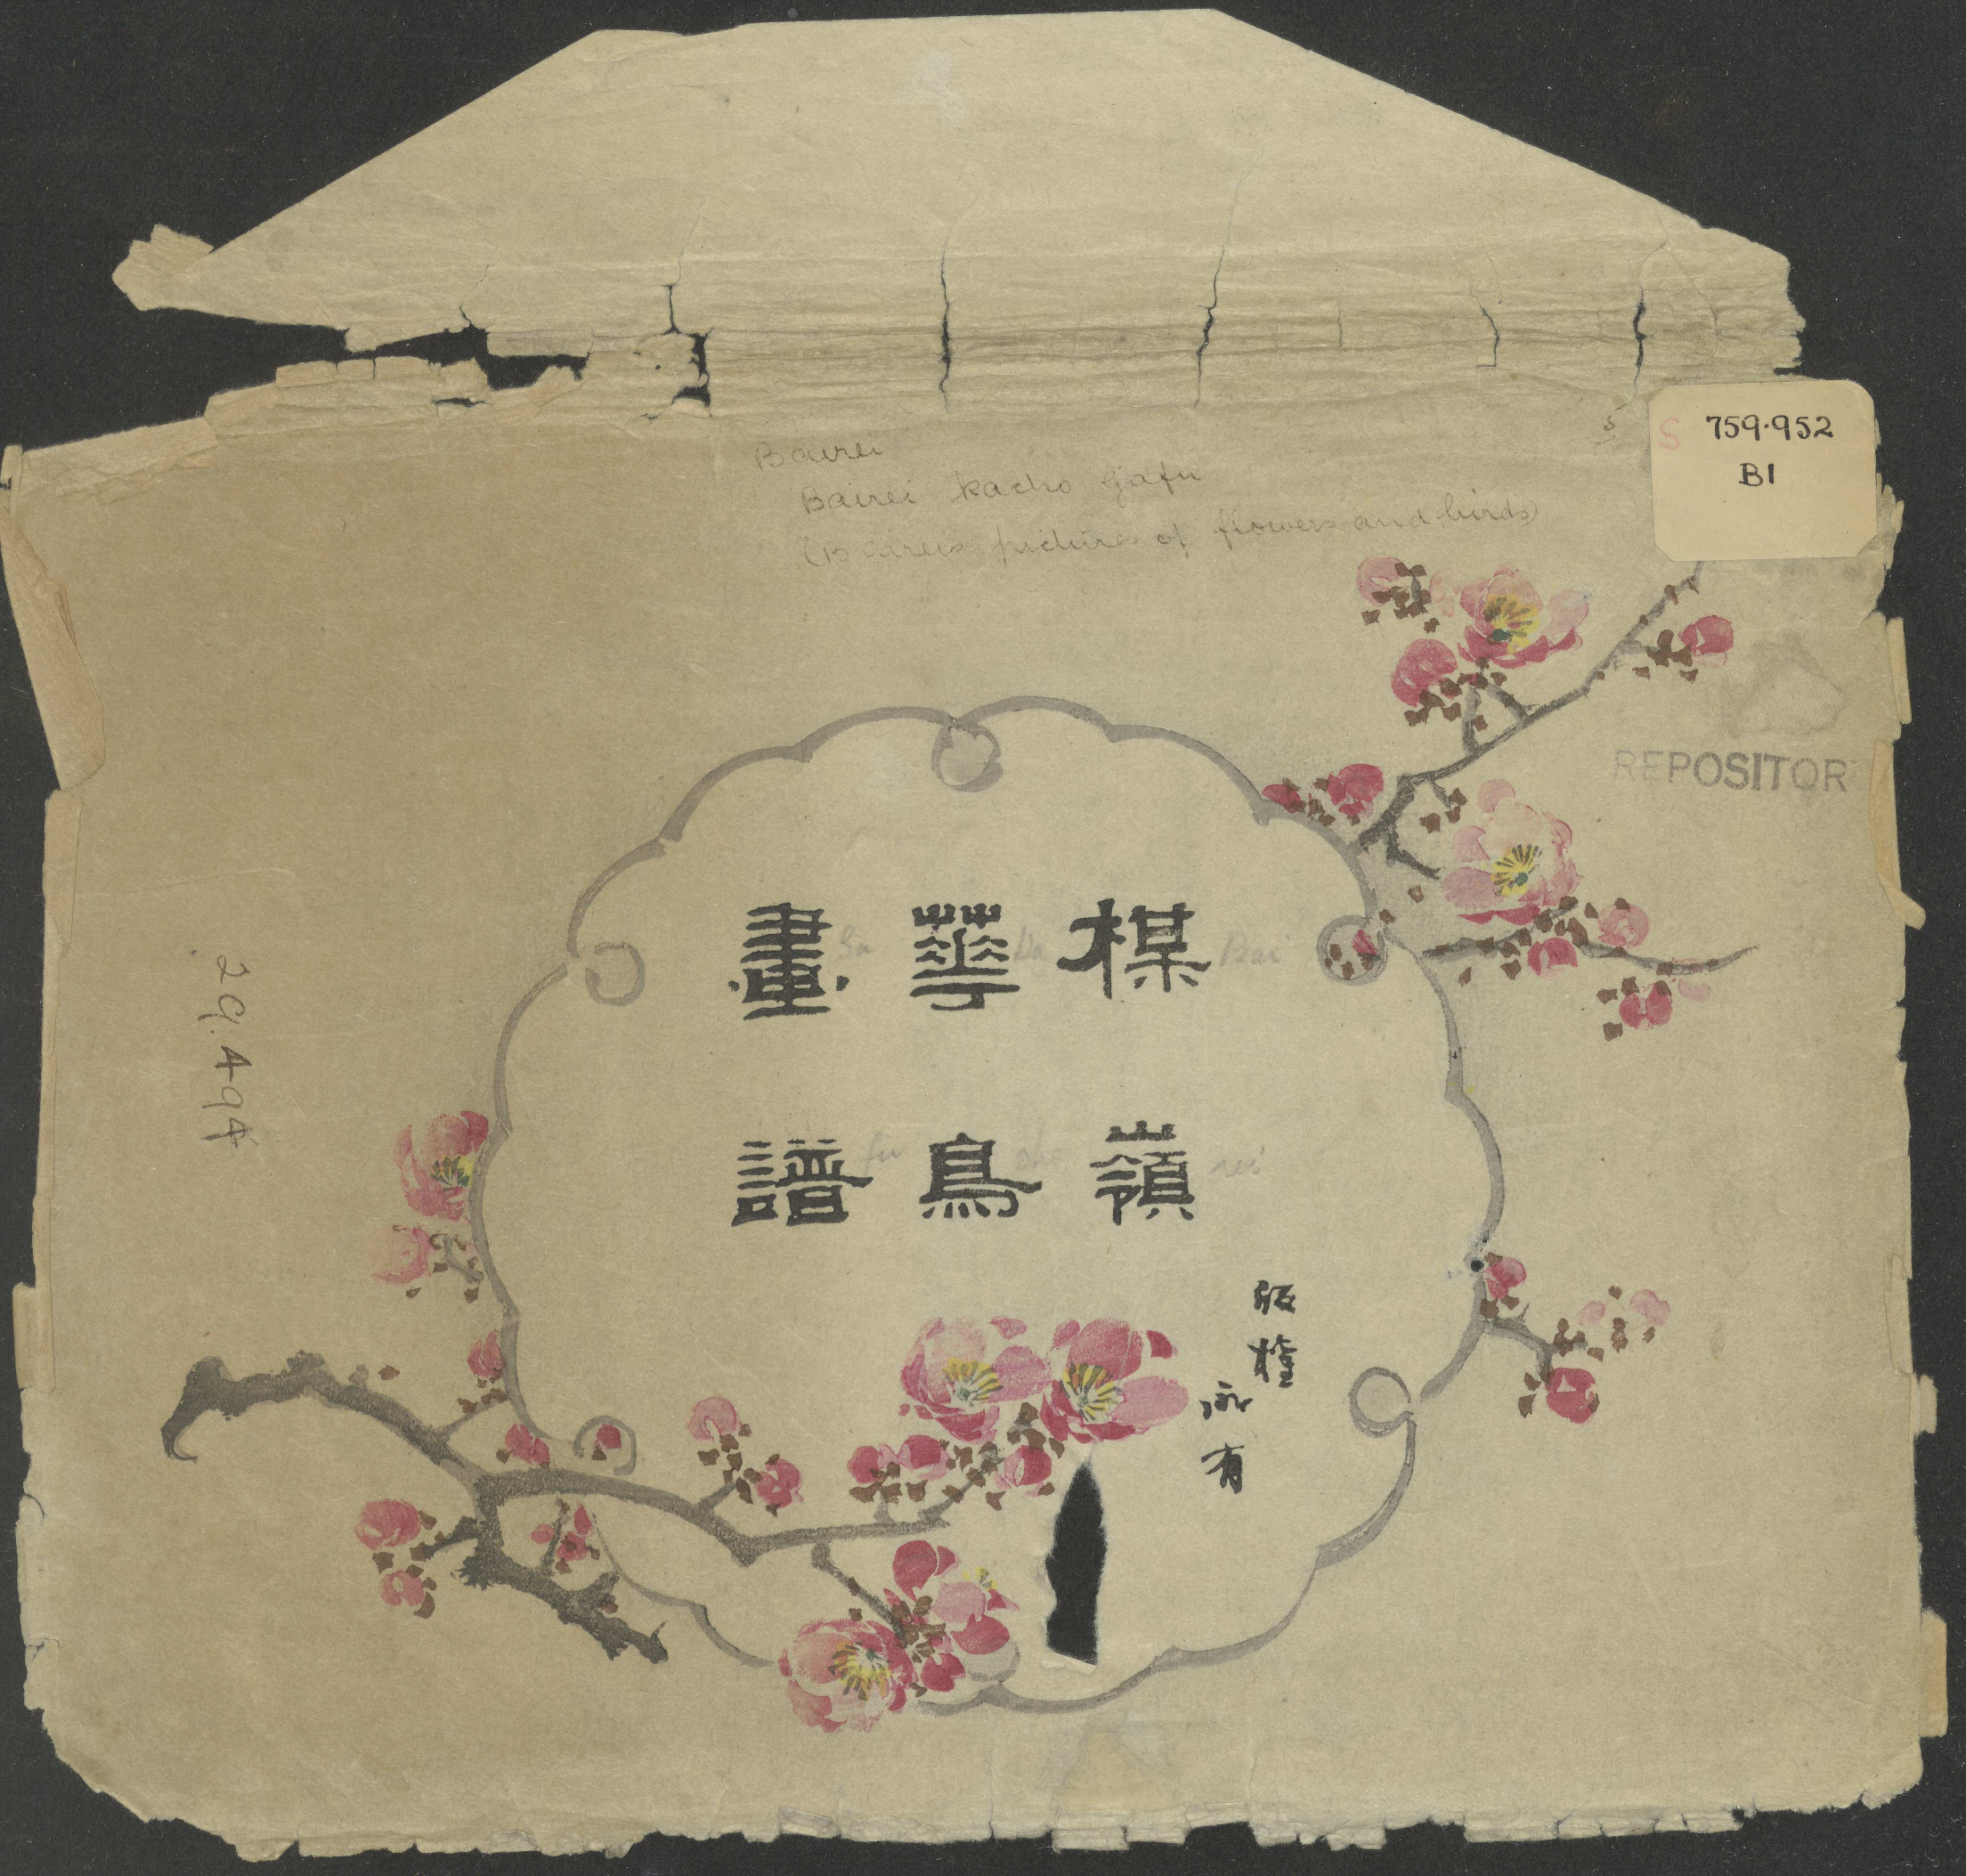 S 759.952
B1
5
Bairei
Bairei kacho gafu
(Baireis pictures of flowers and birds)
REPOSITOR
楳嶺
Bai rei
華鳥
ka cho
畫譜
Ga fu
版権
永有
29.494